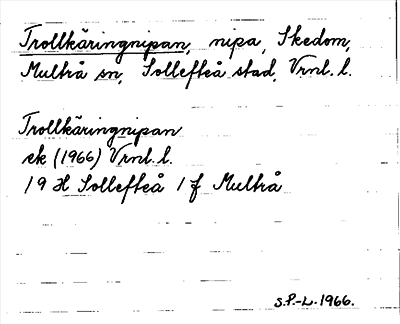 Trollkäringnipan, nipa, Skedom,
Multrå sn, Sollefteå stad, Vrnl. l.
Trollkäringnipan
ek (1966) Vrnl. l.
19 H Sollefteå 1 f Multrå
S.P.-L. 1966.